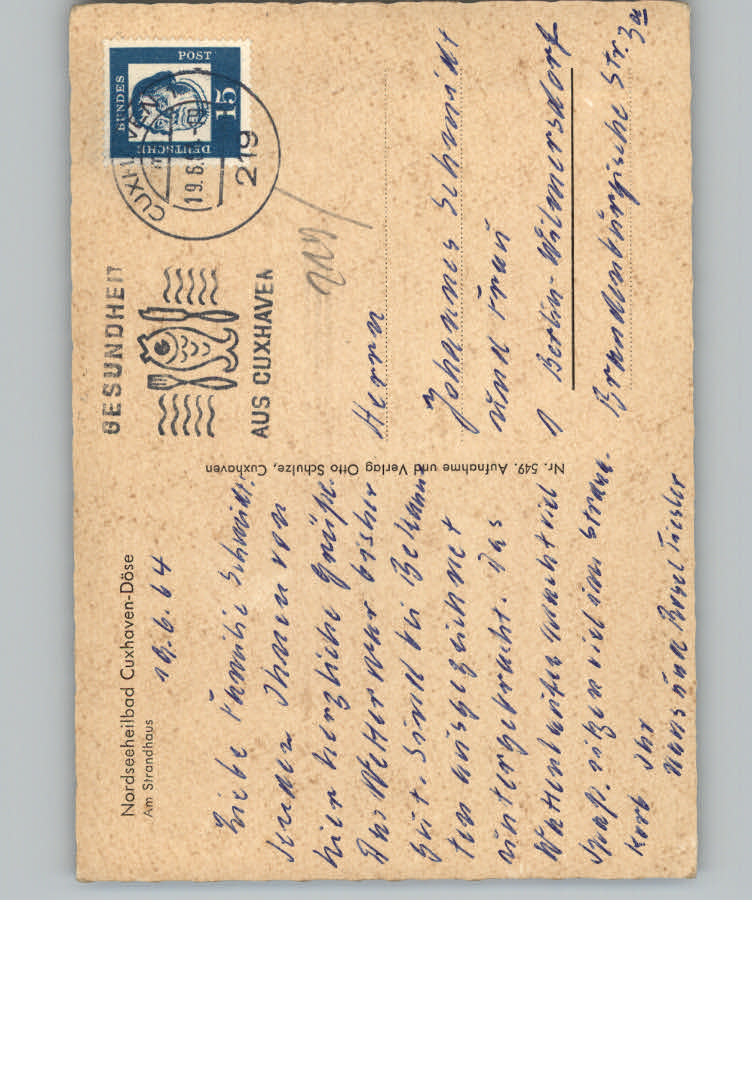 Nordseeheilbad Cuxhaven-Döse
Am Strandhaus
18.6.64
Liebe Familie Schmidt,
senden Ihnen von
hier herzliche Grüße.
Das Wetter war bisher
gut. Sind bei Bekann
ten ausgezeichnet
untergebracht. Das
Wattenlaufen macht viel
Spaß. sitzen viel im Strand-
korb Ihr
Hans und
Nr. 549. Aufnahme und Verlag Otto Schulze, Cuxhaven
GESUNDHEIT
AUS CUXHAVEN
CUXHAVEN
19.6.
219
DEUTSCHE
BUNDES
POST
15
Herrn
Johannes Schmidt
und Frau
1 Berlin-Wilmersdorf
Brandenburgische Str. 3a